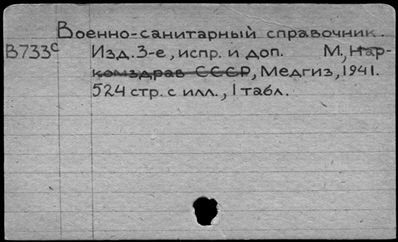 Военно-санитарный справочник.
В733с Изд. 3-е, испр. и доп. М., Нар-
комздрав СССР, Медгиз, 1941.
524 стр. с илл., 1 табл.